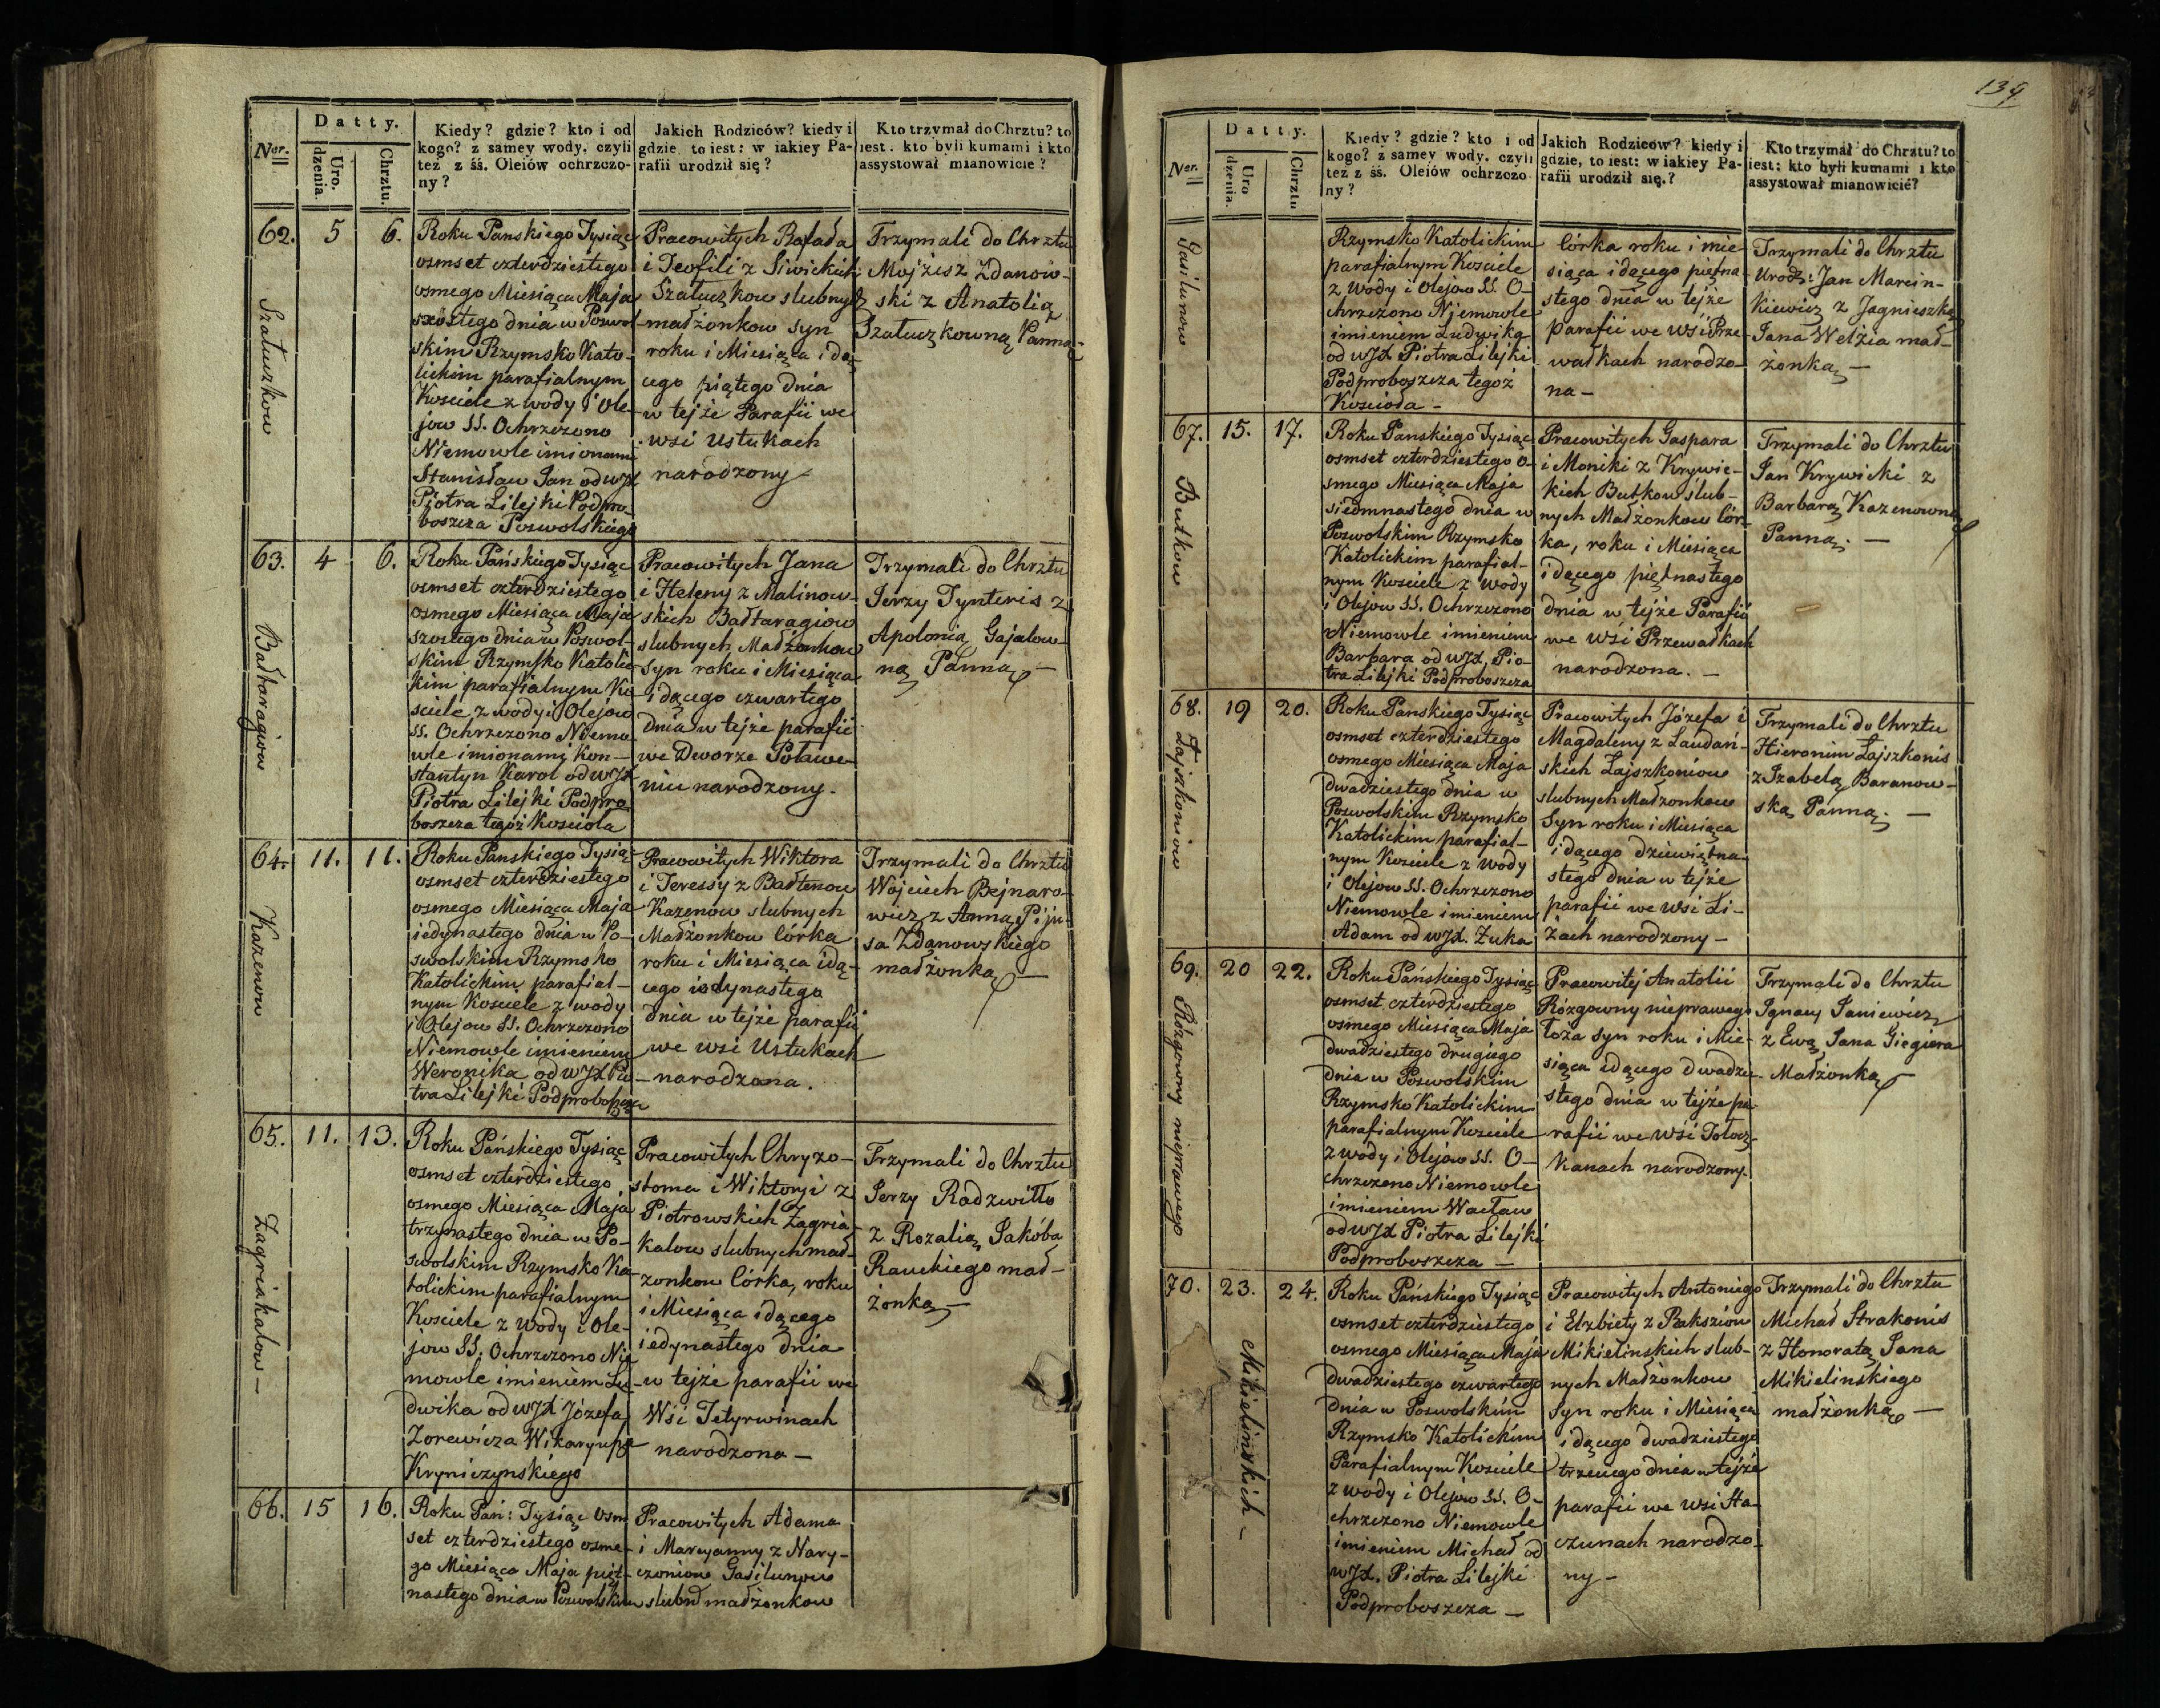 Datty.
Ner.
Uro.
dzenia.
Chrztu.
Kiedy? gdzie? kto i od
kogo? z samey wody, czyli
też z śś. Oleiów ochrzczo-
ny?
Jakich Rodziców? kiedy i
gdzie to iest: w iakiey Pa-
rafii urodził się?
Kto trzymał do Chrztu? to
iest. kto byli kumami i kto
assystował mianowicie?
62.
5
6.
Szatuczkow
Roku Panskiego Tysiąc
osmset czterdziestego
osmego Miesiąca Maja
szostego dnia w Poswol-
skim Rzymsko Kato-
lickim parafialnym
Kosciele z wody i Ole-
jow SS. Ochrzczono
Niemowle imionami
Stanisław Jan od WJX
Piotra Lilejki Podpro-
boszcza Poswolskiego
Pracowitych Rafała
i Teofili z Siwickich
Szatuczkow slubnych
małżonkow syn
roku i Miesiąca idą-
cego piątego dnia
w tejże Parafii we
wsi Ustukach
narodzony
Trzymali do Chrztu
Mojżisz Zdanow-
ski z Anatolią
Szatuczkowną Panną
63.
4
6.
Bałtaragiow
Roku Pańskiego Tysiąc
osmset czterdziestego
osmego Miesiąca Maja
szostego dnia w Poswol-
skim Rzymsko Katolic-
kim parafialnym Ko
sciele z wody i Olejow
SS. Ochrzczono Niemo
wle imionami Kon-
stantyn Karol od WJX
Piotra Lilejki Podpro
boszcza tegoż Kosciola
Pracowitych Jana
i Heleny z Malinow-
skich Bałtaragiow
slubnych Małżonkow
syn roku i Miesiąca
idącego czwartego
Dnia w tejże parafii
we Dworze Poławe-
niu narodzony.
Trzymali do Chrztu
Jerzy Tynteris z
Apolonią Gajalow-
ną Panną —
64.
11.
11.
Kazenow
Roku Panskiego Tysią-
osmset czterdziestego
osmego Miesiąca Maja
iedynastego dnia w Po-
swolskim Rzymsko
Katolickim parafial-
nym Kosciele z wody
i Olejow SS. Ochrzczono
Niemowle imieniem
Weronika od WJX Pio
tra Lilejki Podproboszcza
Pracowitych Wiktora
i Teressy z Bałtenow
Kazenow slubnych
Małżonkow Córka
roku i Miesiąca idą-
cego iedynastego
dnia w tejże parafii
we wsi Ustukach
— narodzona.
Trzymali do Chrztu
Wojciech Bejnaro-
wicz z Anną Piju-
sa Zdanowskiego
małżonką —
65.
11.
13.
Zagriakalow —
Roku Pańskiego Tysiąc
osmset czterdziestego
osmego Miesiąca Maja
trzynastego dnia w Po-
swolskim Rzymsko Ka-
tolickim parafialnym
Kosciele z wody i Ole-
jow SS. Ochrzczono Nie
mowle imieniem Lu-
dwika od WJX Józefa
Zorewicza Wikaryusza
Kryniczynskiego
Pracowitych Chryzo-
stoma i Wiktoryi z
Piotrowskich Zagria-
kalow slubnych mał-
zonkow Córka, roku
i Miesiąca idącego
iedynastego dnia
w tejże parafii we
Wsi Tetyrwinach
narodzona —
Trzymali do Chrztu
Jerzy Radzwiłło
z Rozalią Jakóba
Rauckiego mał-
żonką —
66.
15
16.
Roku Pań: Tysiąc Osm
set czterdziestego osme-
go Miesiąca Maja pięt-
nastego dnia w Poswolskim
Pracowitych Adama
i Maryanny z Nary-
czoniow Gasilunow
slubn małżonkow
139
Datty.
Ner.
Uro
dzenia.
Chrztu
Kiedy? gdzie? kto i od
kogo? z samey wody. czyli
też z śś. Oleiów ochrzczo
ny?
Jakich Rodziców? kiedy i
gdzie, to iest: w iakiey Pa-
rafii urodził się.?
Kto trzymał do Chrztu? to
iest: kto byli kumami i kto
assystował mianowicié?
Gasilunow
Rzymsko Katolickim
parafialnym Kosciele
z Wody i Olejow SS. O-
chrzczono Niemowle
imieniem Ludwika
od WJX Piotra Lilejki
Podproboszcza tegoż
Koscioła —
Córka roku i mie
siąca idącego piętna
stego dnia w tejże
parafii we wsi Prze-
wałkach narodzo-
na —
Trzymali do Chrztu
Urodz: Jan Marcin-
kiewicz z Jagnieszką
Jana Welżia mał-
żonką —
67.
15.
17.
Butkow
Roku Panskiego Tysiąc
osmset czterdziestego o-
smego Miesiąca Maja
siedmnastego dnia w
Poswolskim Rzymsko
Katolickim parafial-
nym Kosciele z wody
i Olejow SS. Ochrzczono
Niemowle imieniem
Barbara od WJX, Pio-
tra Lilejki Podproboszcza
Pracowitych Gaspara
i Moniki z Krywic-
kich Butkow slub-
nych Małżonkow Cór
ka, roku i Miesiąca
idącego piętnastego
dnia w tejże Parafii
we wsi Przewałkach
narodzona. —
Trzymali do Chrztu
Jan Krywicki z
Barbarą Kazenowną
Panną. —
68.
19
20.
Łajszkoniow
Roku Panskiego Tysiąc
osmset czterdziestego
osmego Miesiąca Maja
dwadziestego dnia w
Poswolskim Rzymsko
Katolickim parafial-
nym Kosciele z wody
i Olejow SS. Ochrzczono
Niemowle imieniem
Adam od WJX. Żuka
Pracowitych Józefa i
Magdaleny z Laudań-
skich Łajszkoniow
slubnych Małżonkow
Syn roku i Miesiąca
idącego dziewiętna
stego dnia w tejże
parafii we wsi Li-
żach narodzony —
Trzymali do Chrztu
Hieronim Łajszkonis
z Izabelą Baranow-
ską Panną. —
69.
20
22.
Rózgowny nieprawego
Roku Pańskiego Tysiąc
osmset czterdziestego
osmego Miesiąca Maja
dwadziestego drugiego
dnia w Poswolskim
Rzymsko Katolickim
parafialnym Kosciele
z wody i Olejow SS. O-
chrzczono Niemowle
imieniem Wacław
od WJX Piotra Lilejki
Podproboszcza —
Pracowitej Anatolii
Rózgowny nieprawego
łoza syn roku i Mie-
siąca idącego dwadzie
stego dnia w tejże pa
rafii we wsi Tołocz-
kanach narodzony.
Trzymali do Chrztu
Ignacy Janiewicz
z Ewą Jana Giegiera
Małżonką
70.
23.
24.
Mikielinskich —
Roku Pańskiego Tysiąc
osmset czterdziestego
osmego Miesiąca Maja
dwadziestego czwartego
dnia w Poswolskim
Rzymsko Katolickim
Parafialnym Kosciele
z wody i Olejow SS. O-
chrzczono Niemowle
imieniem Michał od
WJX. Piotra Lilejki
Podproboszcza —
Pracowitych Antoniego
i Elzbiety z Rakszíow
Mikielinskich slub-
nych Małżonkow
syn roku i Miesiąca
idącego dwadziestego
trzeciego dnia w tejże
parafii we wsi Sta-
czunach narodzo-
ny —
Trzymali do Chrztu
Michał Strakonis
z Honoratą Jana
Mikielinskiego
małżonką —